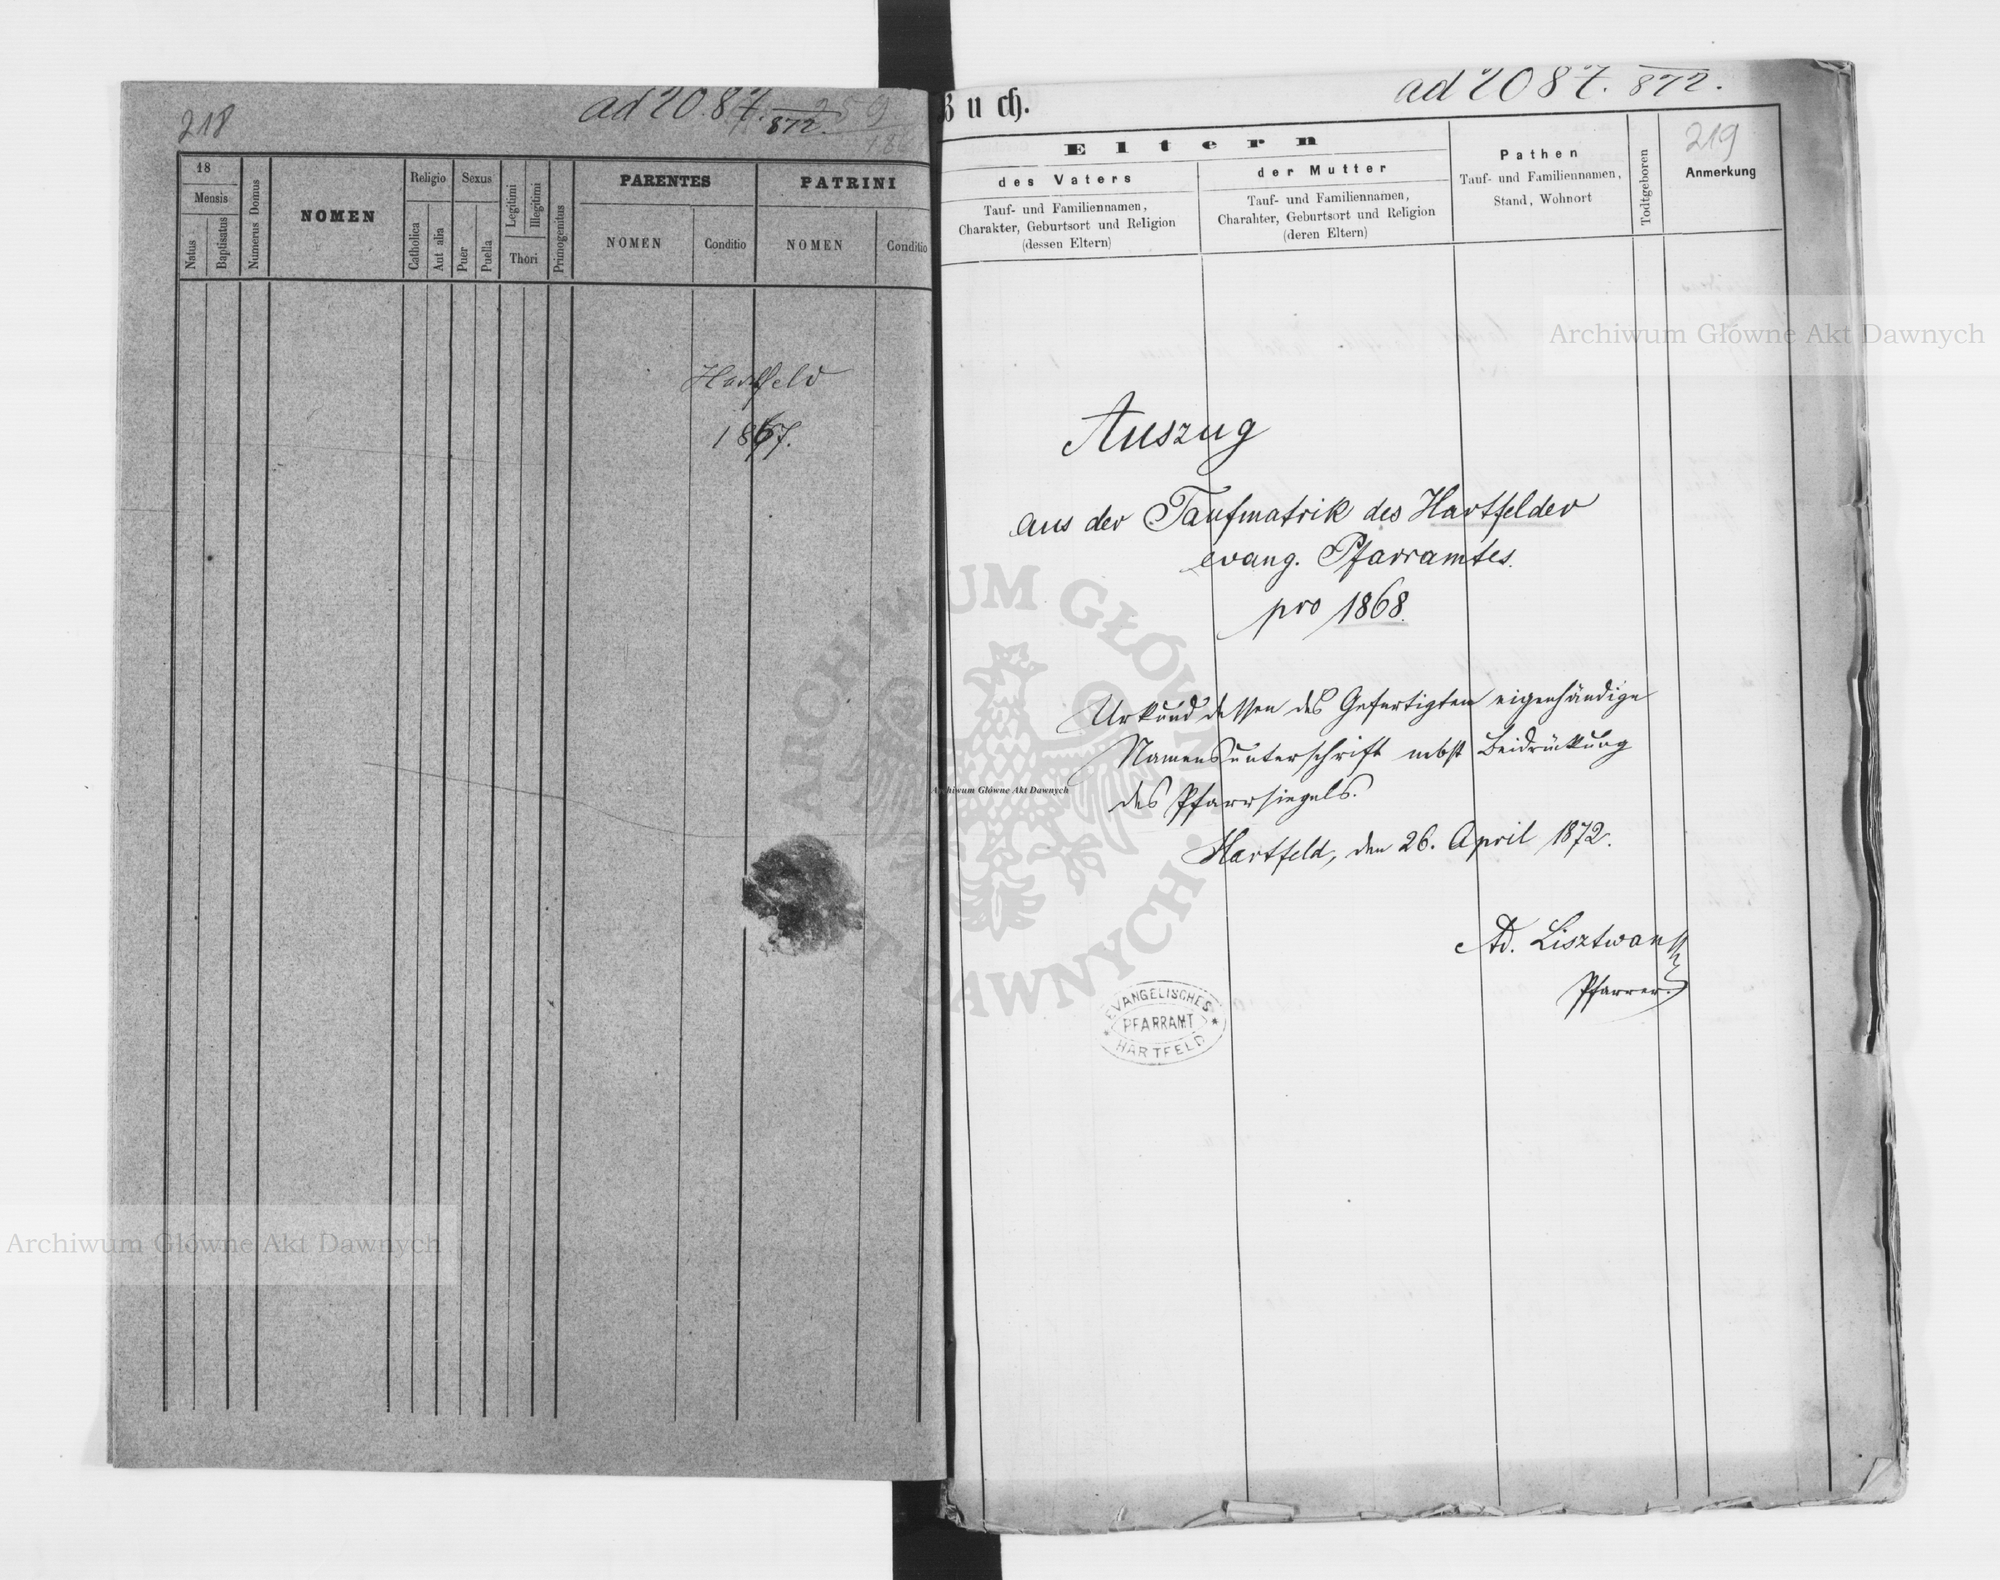 218
ad 2087.
872.
18
Mensis
Natus
Baptisatus
Numerus Domus
NOMEN
Religio
Catholica
Aut alia
Sexus
Puer
Puella
Legitimi
Illegitimi
Thori
Primogenitus
PARENTES
NOMEN
Conditio
PATRINI
NOMEN
Conditio
Hartfeld
1867.
Buch.
ad 2087.
872.
219
Eltern
des Vaters
Tauf- und Familiennamen,
Charakter, Geburtsort und Religion
(dessen Eltern)
der Mutter
Tauf- und Familiennamen,
Charahter, Geburtsort und Religion
(deren Eltern)
Pathen
Tauf- und Familiennamen,
Stand, Wohnort
Todtgeboren
Anmerkung
Auszug
aus der Taufmatrik des Hartfelder
evang. Pfarramtes.
pro 1868.
Urkund dessen des Gefertigten eigenhändige
Namensunterschrift nebst Beidrückung
des Pfarrsiegels.
Hartfeld, den 26. April 1872.
Ad. Lisztwan
Pfarrer.
EVANGELISCHES
PFARRAMT
HARTFELD
Archiwum Główne Akt Dawnych
Archiwum Główne Akt Dawnych
Archiwum Główne Akt Dawnych
ARCHIWUM GŁÓWNE
DAWNYCH